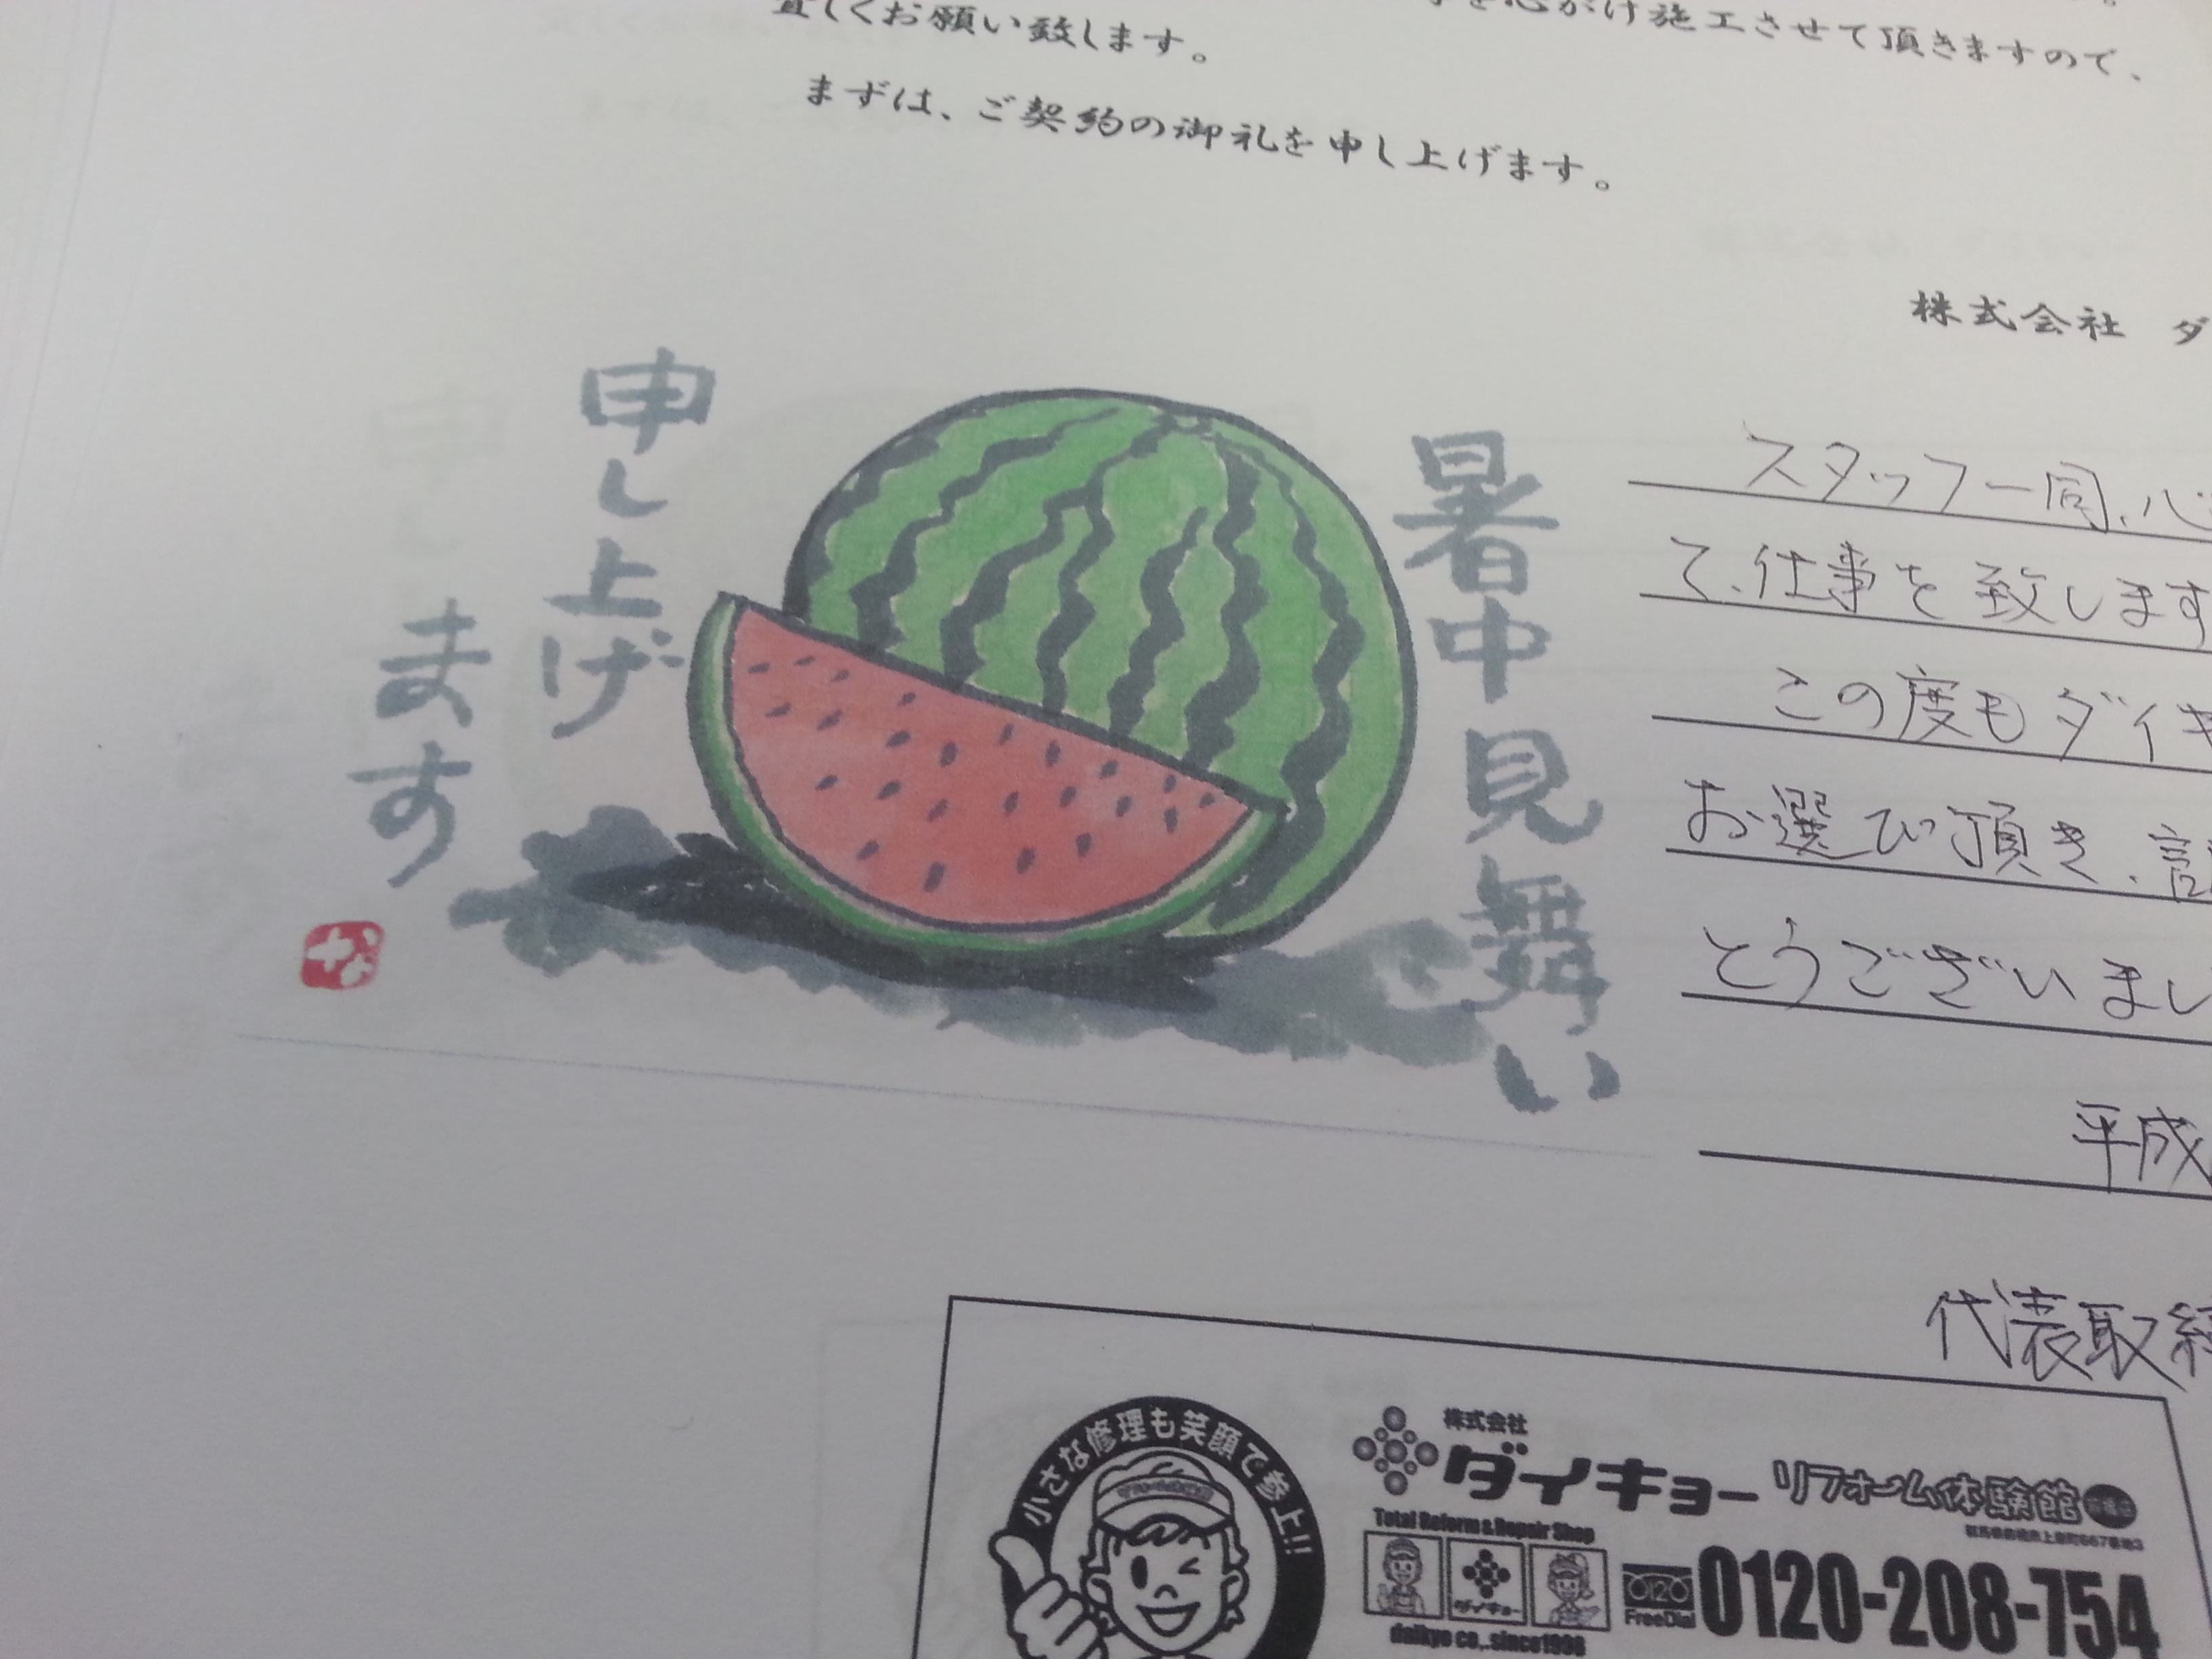 を心がけ施工させて頂きますので、
宜しくお願い致します。
まずは、ご契約の御礼を申し上げます。
株式会社 ダ
暑中見舞い
申し上げ
ます
スタッフ一同、心
て、仕事を致します
この度もダイキ
お選び頂き、
とうございまし
平成
代表取締
小さな修理も笑顔で参上!!
株式会社
ダイキョー リフォーム体験館
Total Reform & Repair Shop
ダイキョー
FreeDial 0120-208-754
daikyo co,.since1996